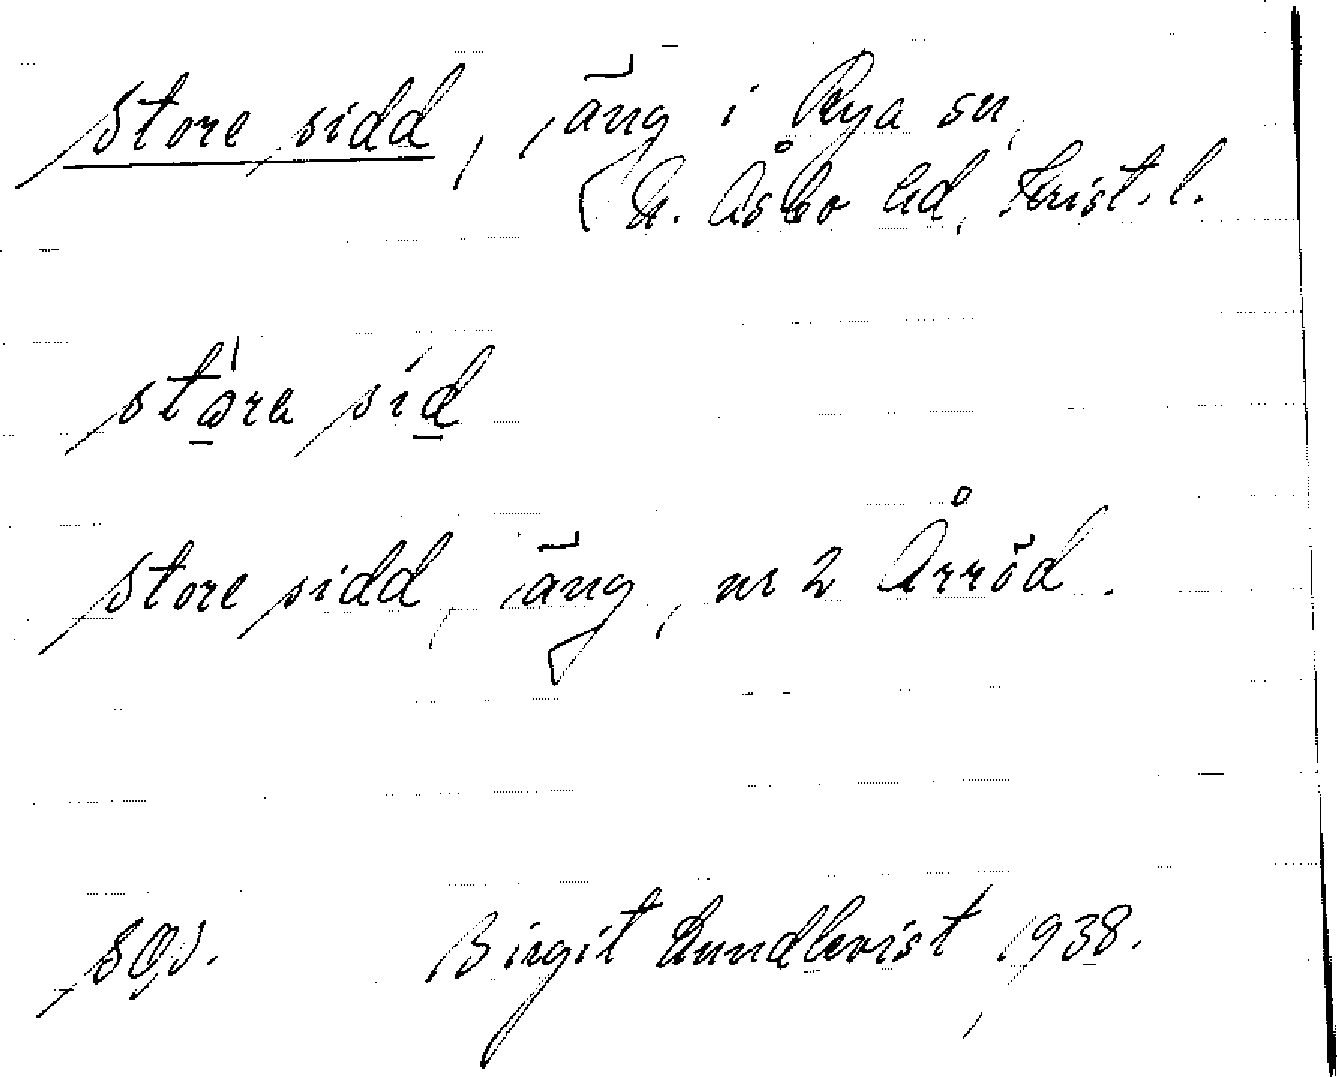 store sidd, äng i Rya sn,
N. Åsbo hd, Krist. l.
store sidd, äng, nr 2 Årröd.
Birgit Lundkvist, 1938.